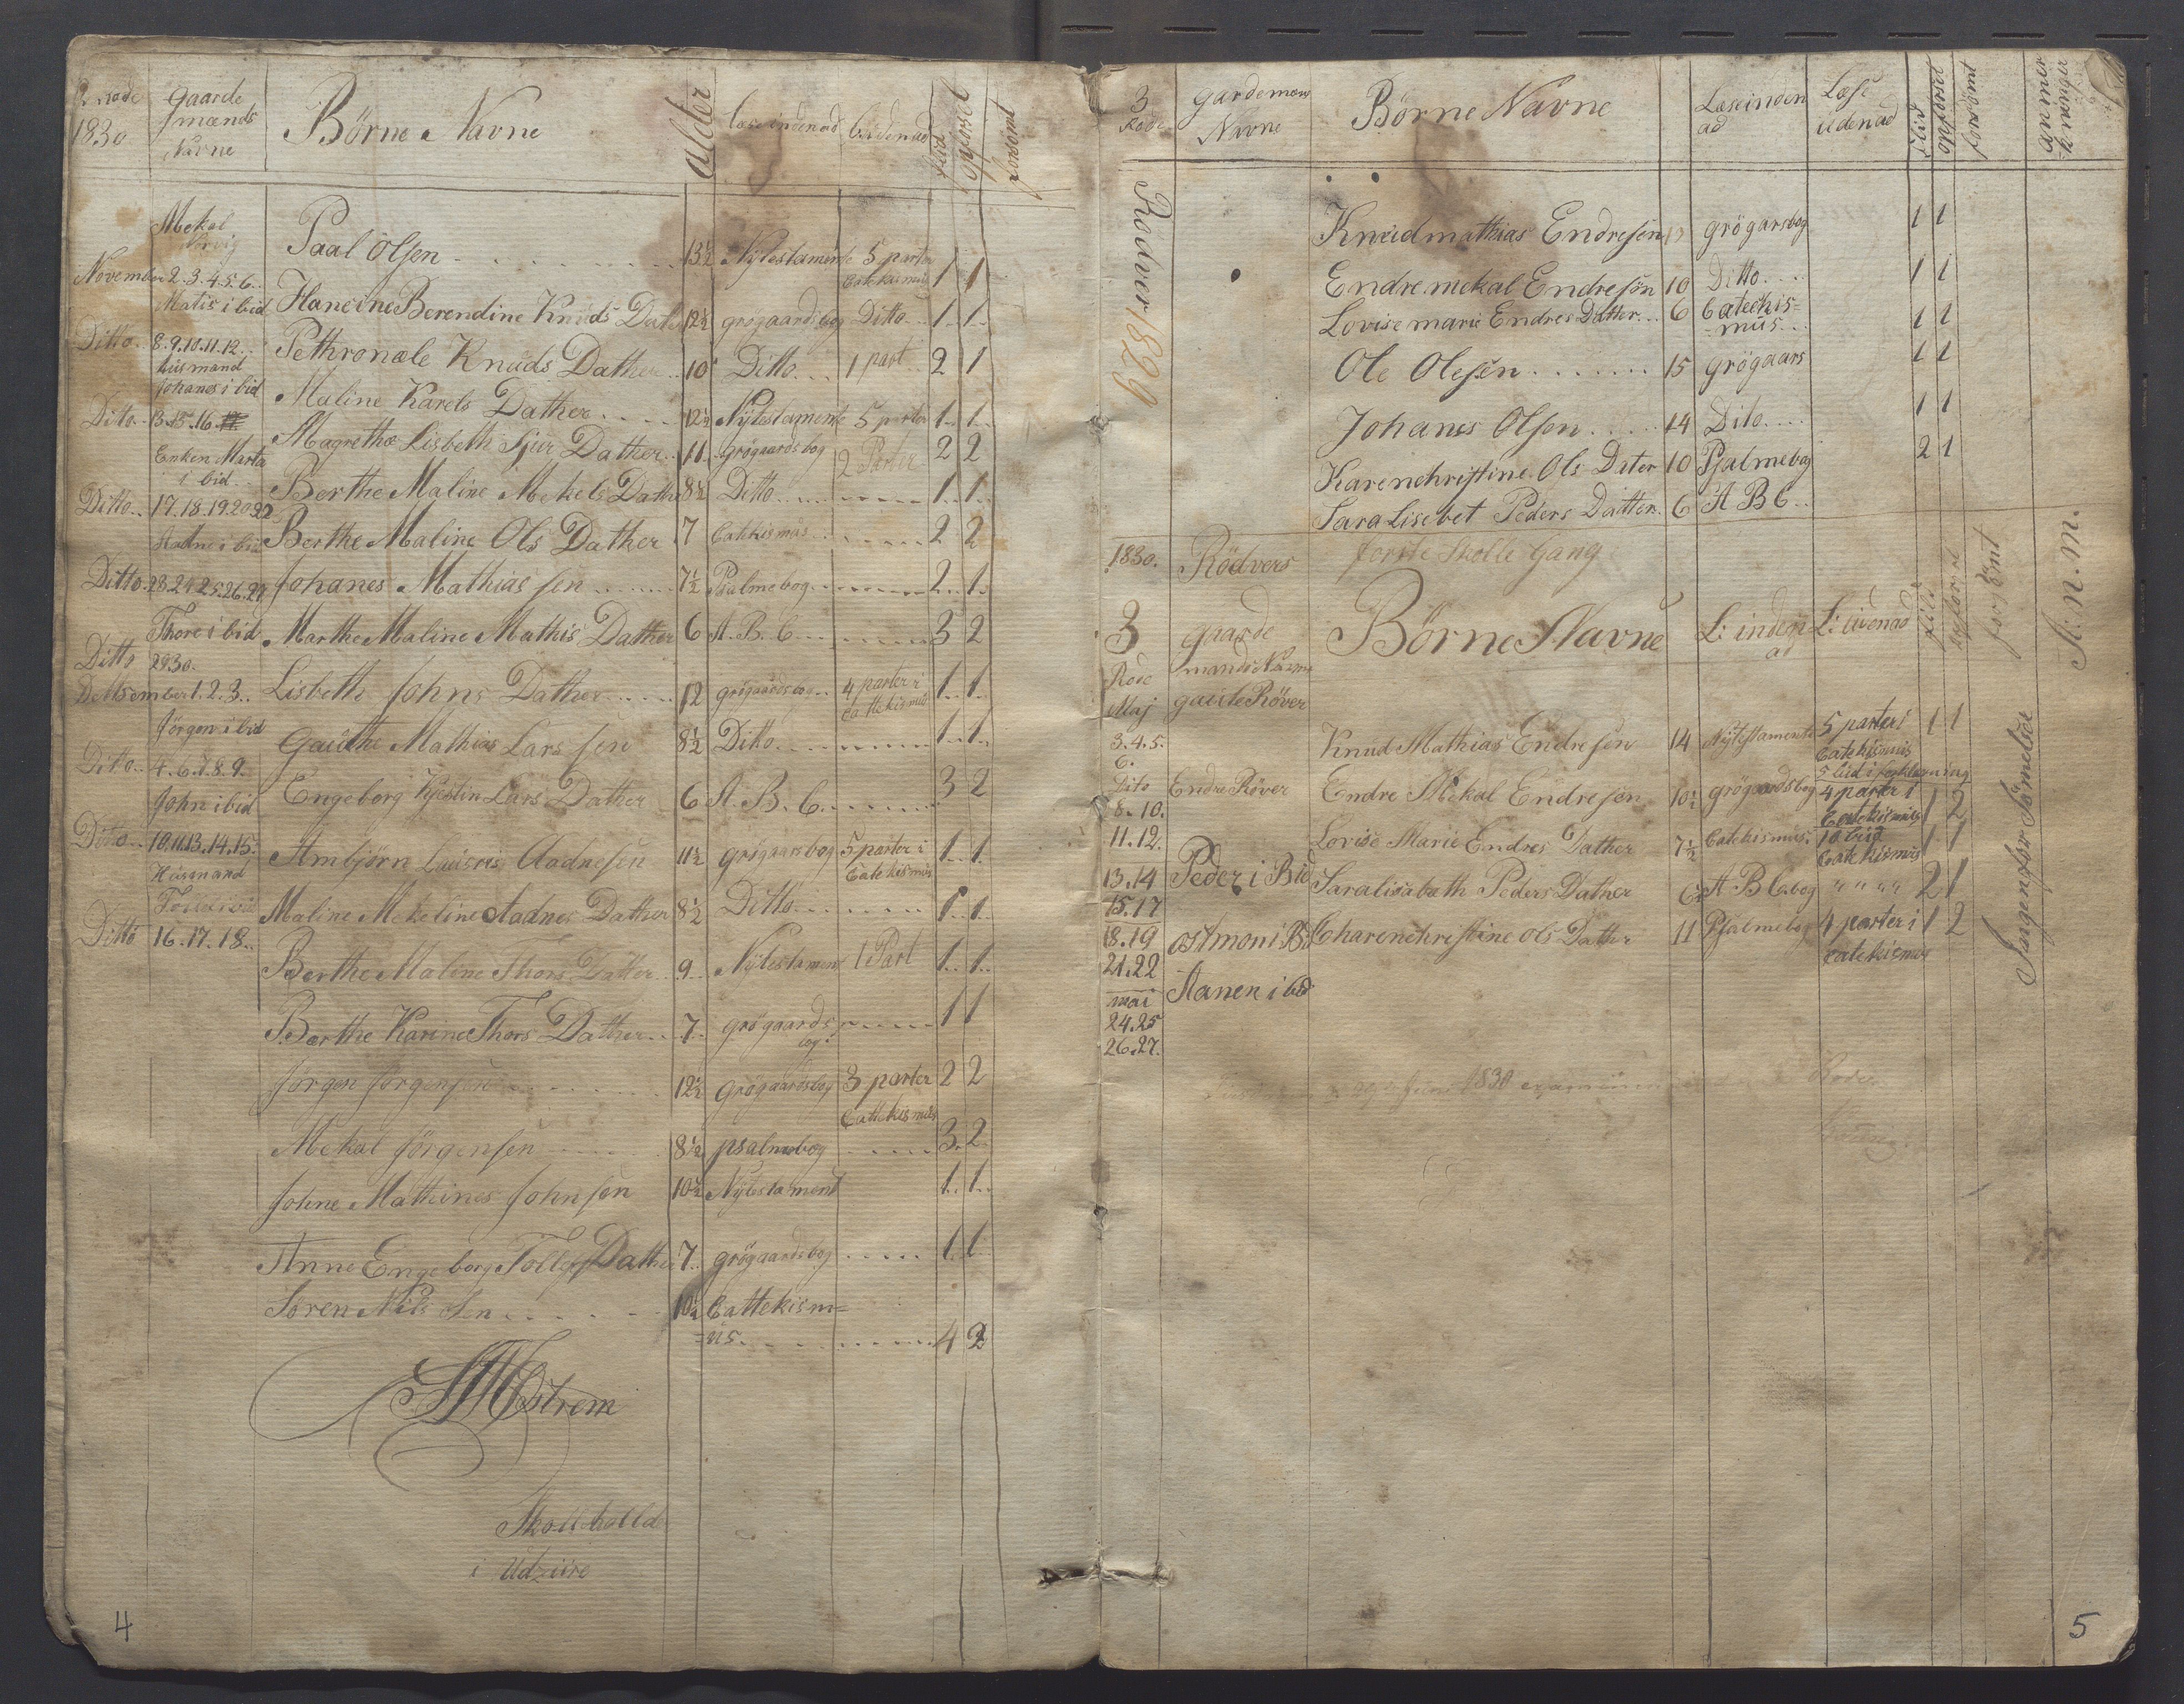 Rode 1830 Gaarde mænds Navne Börne Navne alder læse indenad udenad flid opförsel forsömt
Mekal Nörvig Paal Olsen 13½ Nÿtestamente 5 parter Catekismus 1 1
November 2.3.4.5.6.
Matis i bid Hansine Berendine Knuds Dather 12½ grögaardsbog Ditto 1 1
Ditto 8.9.10.11.12. Pethronæle Knuds Dather 10 Ditto 1 part 2 1
Husmand Johanes i bid Maline Karels Dather 12½ Nÿtestamente 5 parter 1 1
Ditto 13.15.16.
Magrethe Lisbeth Sjur Dather 11 grögaardsbog 2 Parter 2 2
Enken Marta i bid Berthe Maline Mekels Dather 8½ Ditto 1 1
Ditto 17.18.19.20.22
Aadne i bid Berthe Maline Ols Dather 7 Catekismus 2 2
Ditto 23.24.25.26.27 Johanes Mathias sen 7½ Psalmebog 2 1
Thore i bid Marthe Maline Mathis Dather 6 A.B.C 3 2
Ditto 29.30.
Detsember 1.2.3. Lisbeth Johns Dather 12 grögaardsbog 4 parter i Cattekismus 1 1
Jörgen i bid Gauthe Mathias Lars sen 8½ Ditto 1 1
Ditto 4.6.7.8.9.
John i bid Engeborg Kjestin Lars Dather 6 A.B.C. 3 2
Ditto 10.11.13.14.15. Ambjörn Aadnesen 11½ grögaarsbog 5 parter i Catekismus 1 1
Husmand i bid Maline Mekeline Aadnes Dather 8½ Ditto 1 1
Ditto 16.17.18.
Berthe Maline Thors Dather 9 Nÿtestament 1 Part 1 1
Berthe Karine Thors Dather 7 grögaards bog 1 1
Jörgen Jörgensen 12½ grögaardsbog 3 parter Cattekismus 2 2
Mekal Jörgensen 8½ psalmebog 3 2
Johne Matheines Johnsen 10½ Nÿtestament 1 1
Anne Engeborg Tollefs Dather 7 grögaardsbog 1 1
Sören Nils sen 10½ Cattekism=
=us 4 2
Östrem
Skolleholder
i Udziire
4
3 Rode gardemæns Navne Börne Navne Læse inden ad Læse udenad Flid opförsel forsömt anmer=kninger
Rödver 1829
Knudmathias Endresen grögarsbog 1 1
Endre mekal Endresön 10 Ditto 1 1
Lovise marie Endres Datter 6 Catechis=
=mus 1 1
Ole Olesen 15 grögaars 1 1
Johanes Olsen 14 Dito 1 1
Karenchristine Ols Dater 10 Psalmebog 2 1
Sara Lisebet Peders Datter 6 A B C
1830. Rödvers forste Skolle Gang
3 Rode gaarde mands Navne Börne Navne L: inden ad L: udenad flid opförsel forsömt A:n.m.
Maj gaute Röver
3.4.5. Knud Mathias Endresen 14 Nÿtestamente 5 parter i Catekismus 1 1
6. 5 bud i forklarning
Dito Endre Röver Endre Mekal Endresen 10½ grögaardsbog 4 parter i Catekismus 1 2
8.10.
11.12. Lovise Marie Endres Dather 7½ Catekismus 10 bud Catekismus 1 1
13.14 Peder i Bid Saralisabath Peders Dather 6½ A B C bog " " " " 2 1
15.17
18.19 ostmon i Bid Charenchristine Ols Dather 11 Psalmebog 4 parter i catekismus 1 2
21.22
mai Aanen i bid
24.25
26.27.
Jngen forsömelse
Juni 1830
5